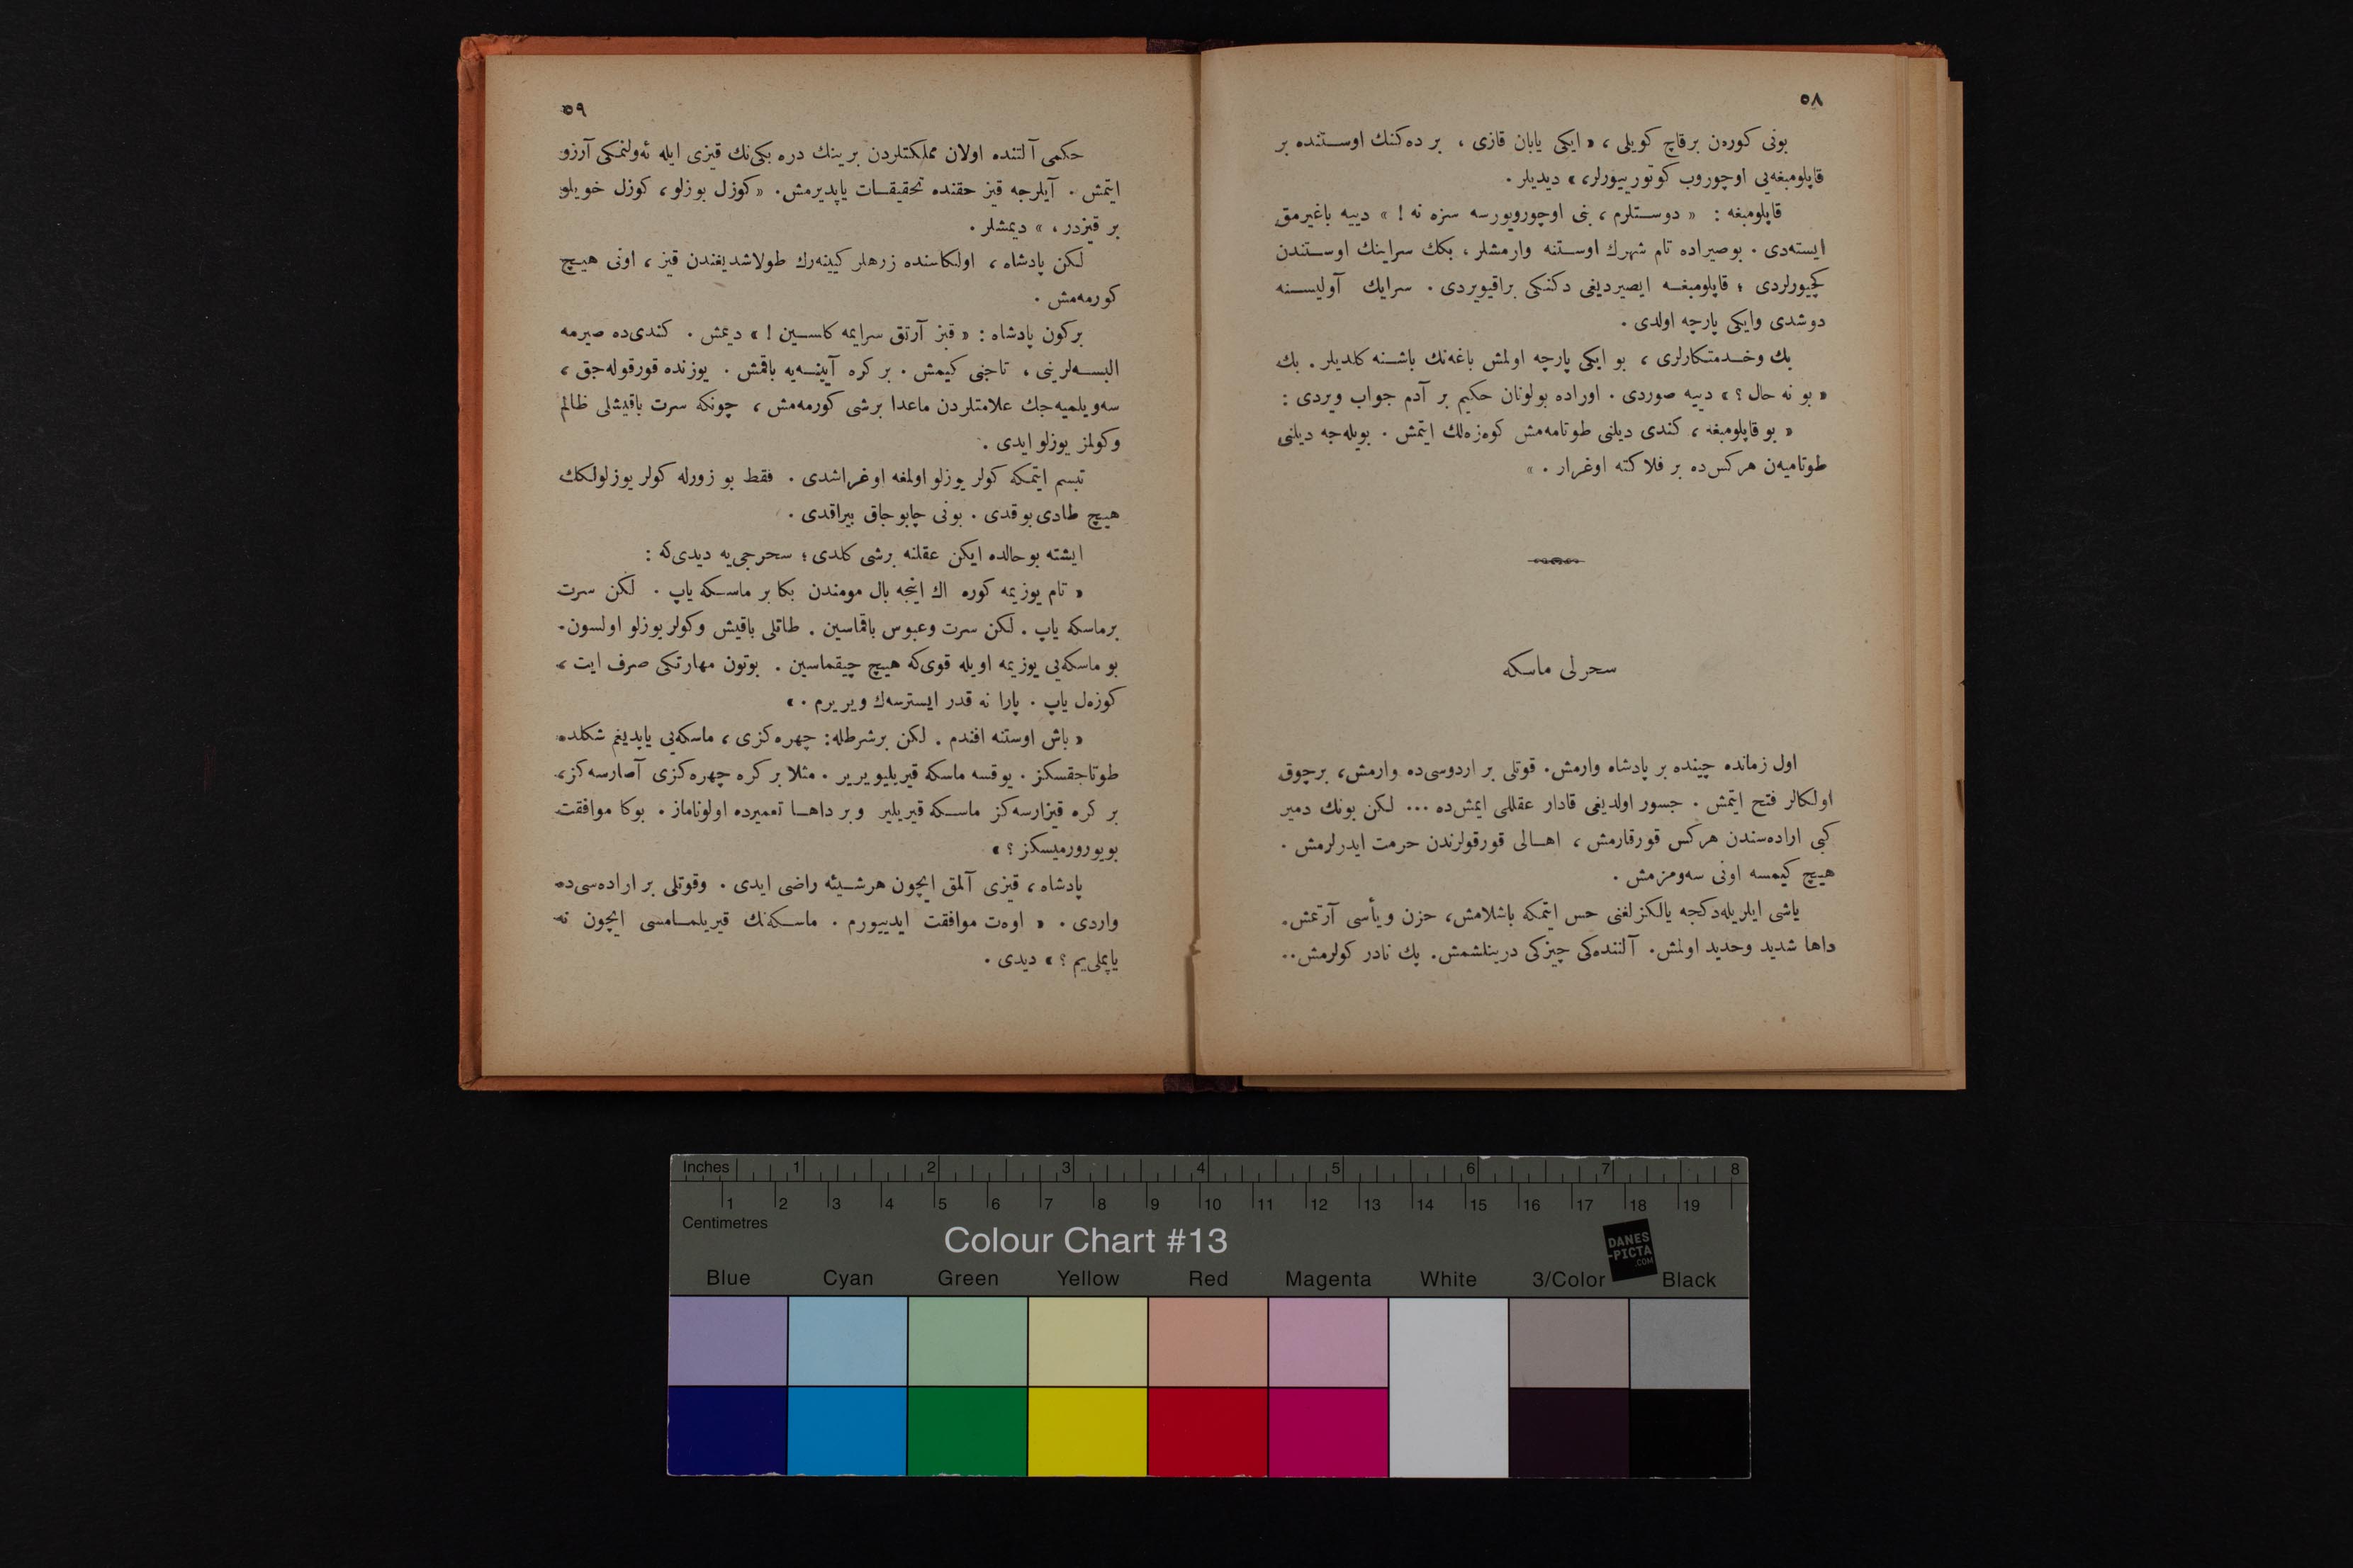 ٥٨
بونی كورەن برقاچ كویلی ، « ایكی یابان قازی ، بر دەكنك اوستندە بر
قاپلومبغەیی اوچوروب كوتورییورلر، » دیدیلر .
قاپلومبغە : « دوستلرم ، بنی اوچوروپورسە سزە نە ! » دییە باغیرمق
ایستەدی . بوصیرادە تام شهرك اوستنە وارمشلر ، بكك سراینك اوستندن
كچیورلردی ؛ قاپلومبغە ایصیردیغی دكنكی براقیویردی . سرایك آولیسنە
دوشدی وایكی پارچە اولدی .
بك وخدمتكارلری ، بو ایكی پارچە اولمش باغەنك باشنە كلدیلر . بك
« بو نە حال ؟ » دییە صوردی . اورادە بولونان حكیم بر آدم جواب ویردی :
« بو قاپلومبغە ، كندی دیلنی طوتامەمش كوەزەلك ایتمش . بویلەجە دیلنی
طوتامیەن هركس دە بر فلاكتە اوغرار . »
سحرلی ماسكە
اول زماندە چیندە بر پادشاە وارمش. قوتلی بر اردوسی دە وارمش، برچوق
اولكالر فتح ایتمش . جسور اولدیغی قادار عقللی ایمش دە ... لكن بونك دمیر
كبی ارادەسندن هركس قورقارمش ، اهالی قورقولرندن حرمت ایدرلرمش .
هیچ كیمسە اونی سەومزمش .
یاشی ایلریلەدكجە یالكزلغنی حس ایتمكە باشلامش، حزن ویأسی آرتمش.
داها شدید وحدید اولمش. آلنندەكی چیزكی درینلشمش. پك نادر كولرمش..
٥٩
حكمی آلتندە اولان مملكتلردن برینك درە بكی نك قیزی ایلە ئەولنمكی آرزو
ایتمش . آیلرجە قیز حقندە تحقیقات یاپدیرمش. «كوزل یوزلو، كوزل خویلو
بر قیزدر ، » دیمشلر .
لكن پادشاە ، اولكاسندە زرهلر كیینەرك طولاشدیغندن قیز ، اونی هیچ
كورمەمش .
بركون پادشاە : « قیز آرتق سرایمە كلسین ! » دیمش . كندی دە صیرمە
البسەلرینی ، تاجنی كیمش . بر كرە آیینەیە باقمش . یوزندە قورقولەجق ،
سەویلمیەجك علامتلردن ماعدا برشی كورمەمش ، چونكە سرت باقیشلی ظالم
وكولمز یوزلو ایدی .
تبسم ایتمكە كولر یوزلو اولمغە اوغراشدی . فقط بو زورلە كولر یوزلولكك
هیچ طادی یوقدی . بونی چابوجاق بیراقدی .
ایشتە بوحالدە ایكن عقلنە برشی كلدی ؛ سحرجی یە دیدی كە :
« تام یوزیمە كورە اك اینجە بال مومندن بكا بر ماسكە یاپ . لكن سرت
برماسكە یاپ . لكن سرت وعبوس باقماسین . طاتلی باقیش وكولر یوزلو اولسون.
بو ماسكەیی یوزیمە اویلە قوی كە هیچ چیقماسین . بوتون مهارتكی صرف ایت ،
كوزەل یاپ . پارا نە قدر ایسترسەك ویریرم . »
« باش اوستنە افندم . لكن برشرطلە: چهرەكزی ، ماسكەیی یاپدیغم شكلدە
طوتاجقسكز . یوقسە ماسكە قیریلیویریر . مثلا بر كرە چهرەكزی آصارسەكز،
بر كرە قیزارسەكز ماسكە قیریلیر وبر داها تعمیردە اولوناماز . بوكا موافقت
بویورورمیسكز ؟ »
پادشاە ، قیزی آلمق ایچون هرشیئە راضی ایدی . وقوتلی بر ارادەسی دە
واردی . « اوەت موافقت ایدییورم . ماسكەنك قیریلمامسی ایچون نە
یاپملی یم ؟ » دیدی .
Inches 1 2 3 4 5 6 7 8
1 2 3 4 5 6 7 8 9 10 11 12 13 14 15 16 17 18 19
Centimetres
Colour Chart #13
DANES
-PICTA
.COM
Blue Cyan Green Yellow Red Magenta White 3/Color Black